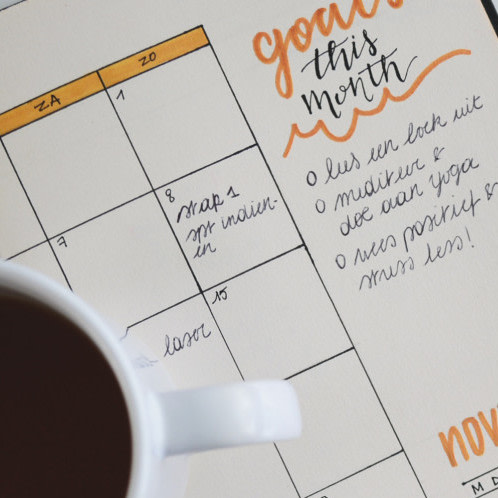 goals
this
month
o lees een boek uit
o mediteer &
doe aan yoga
o wees positief &
stress less!
ZA
ZO
1
7
8
stap 1
spt indien-
en
15
laser
NOV
M D